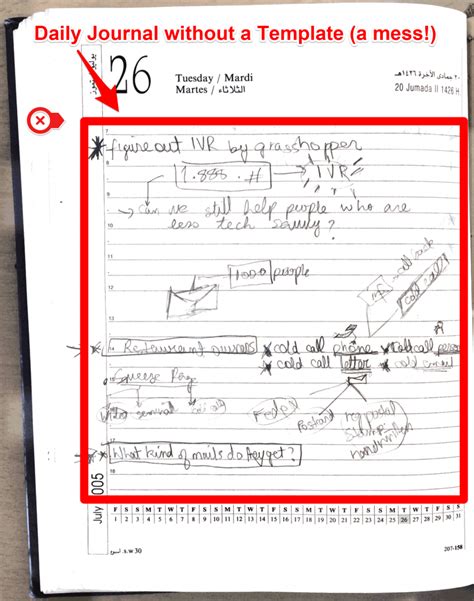 Daily Journal without a Template (a mess!)
26
Tuesday / Mardi
Martes / الثلاثاء
٢٠ جمادى الآخرة ١٤٢٦هـ
20 Jumada II 1426 H
figure out IVR by grasshopper
1.888.#
IVR
can we still help people who are
less tech savvy?
1000 people
Restaurant owners
cold call phone
cold call person
cold call letter
cold
Squeeze Page
FedEx
Postcard
handwritten
What kind of mails do they get?
July 2005
F S S M T W T F S S M T W T F S S M T W T F S S M T W T F S S
1 2 3 4 5 6 7 8 9 10 11 12 13 14 15 16 17 18 19 20 21 22 23 24 25 26 27 28 29 30 31
s.w 30
207-158